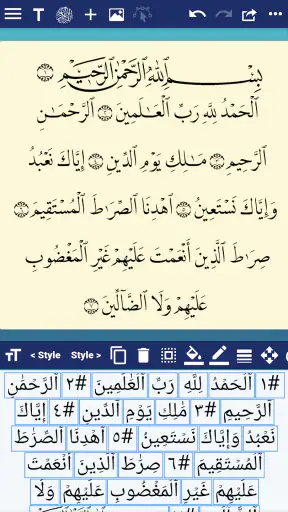 T
بِسْمِ ٱللَّهِ ٱلرَّحْمَٰنِ ٱلرَّحِيمِ ١
ٱلْحَمْدُ لِلَّهِ رَبِّ ٱلْعَٰلَمِينَ ٢ ٱلرَّحْمَٰنِ
ٱلرَّحِيمِ ٣ مَٰلِكِ يَوْمِ ٱلدِّينِ ٤ إِيَّاكَ نَعْبُدُ
وَإِيَّاكَ نَسْتَعِينُ ٥ ٱهْدِنَا ٱلصِّرَٰطَ ٱلْمُسْتَقِيمَ ٦
صِرَٰطَ ٱلَّذِينَ أَنْعَمْتَ عَلَيْهِمْ غَيْرِ ٱلْمَغْضُوبِ
عَلَيْهِمْ وَلَا ٱلضَّآلِّينَ ٧
TT < Style Style >
#١ ٱلْحَمْدُ لِلَّهِ رَبِّ ٱلْعَٰلَمِينَ #٢ ٱلرَّحْمَٰنِ
ٱلرَّحِيمِ #٣ مَٰلِكِ يَوْمِ ٱلدِّينِ #٤ إِيَّاكَ
نَعْبُدُ وَإِيَّاكَ نَسْتَعِينُ #٥ ٱهْدِنَا ٱلصِّرَٰطَ
ٱلْمُسْتَقِيمَ #٦ صِرَٰطَ ٱلَّذِينَ أَنْعَمْتَ
عَلَيْهِمْ غَيْرِ ٱلْمَغْضُوبِ عَلَيْهِمْ وَلَا